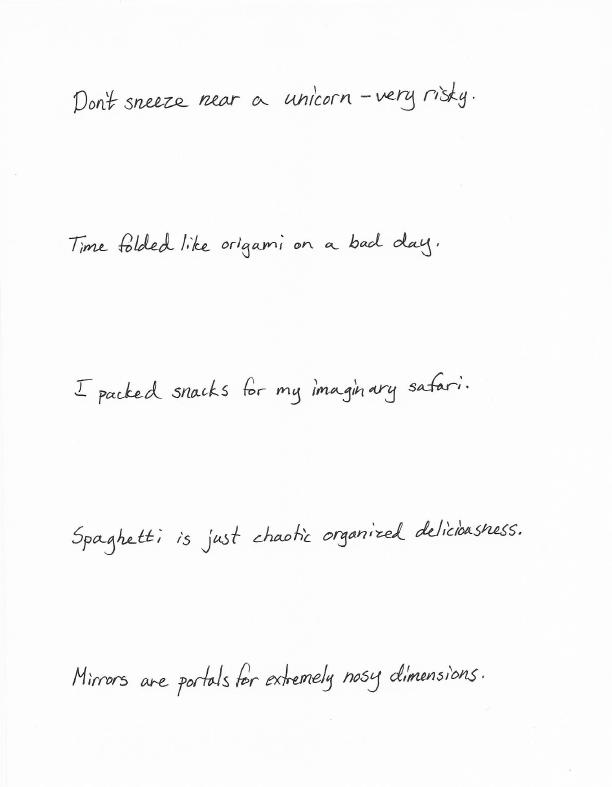 Don't sneeze near a unicorn – very risky.
Time folded like origami on a bad day.
I packed snacks for my imaginary safari.
Spaghetti is just chaotic organized deliciousness.
Mirrors are portals for extremely nosy dimensions.